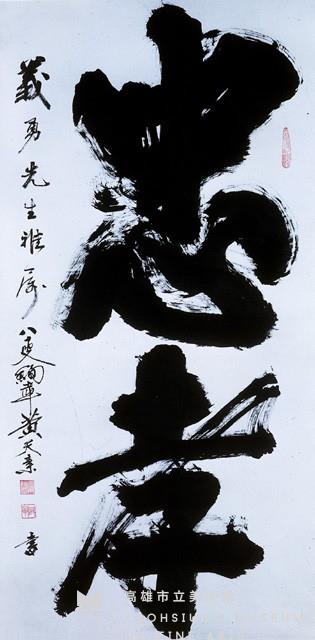 忠孝
義勇先生雅屬
八叟 黃天素 書
高雄市立美術館
KAOHSIUNG MUSEUM
OF FINE ARTS